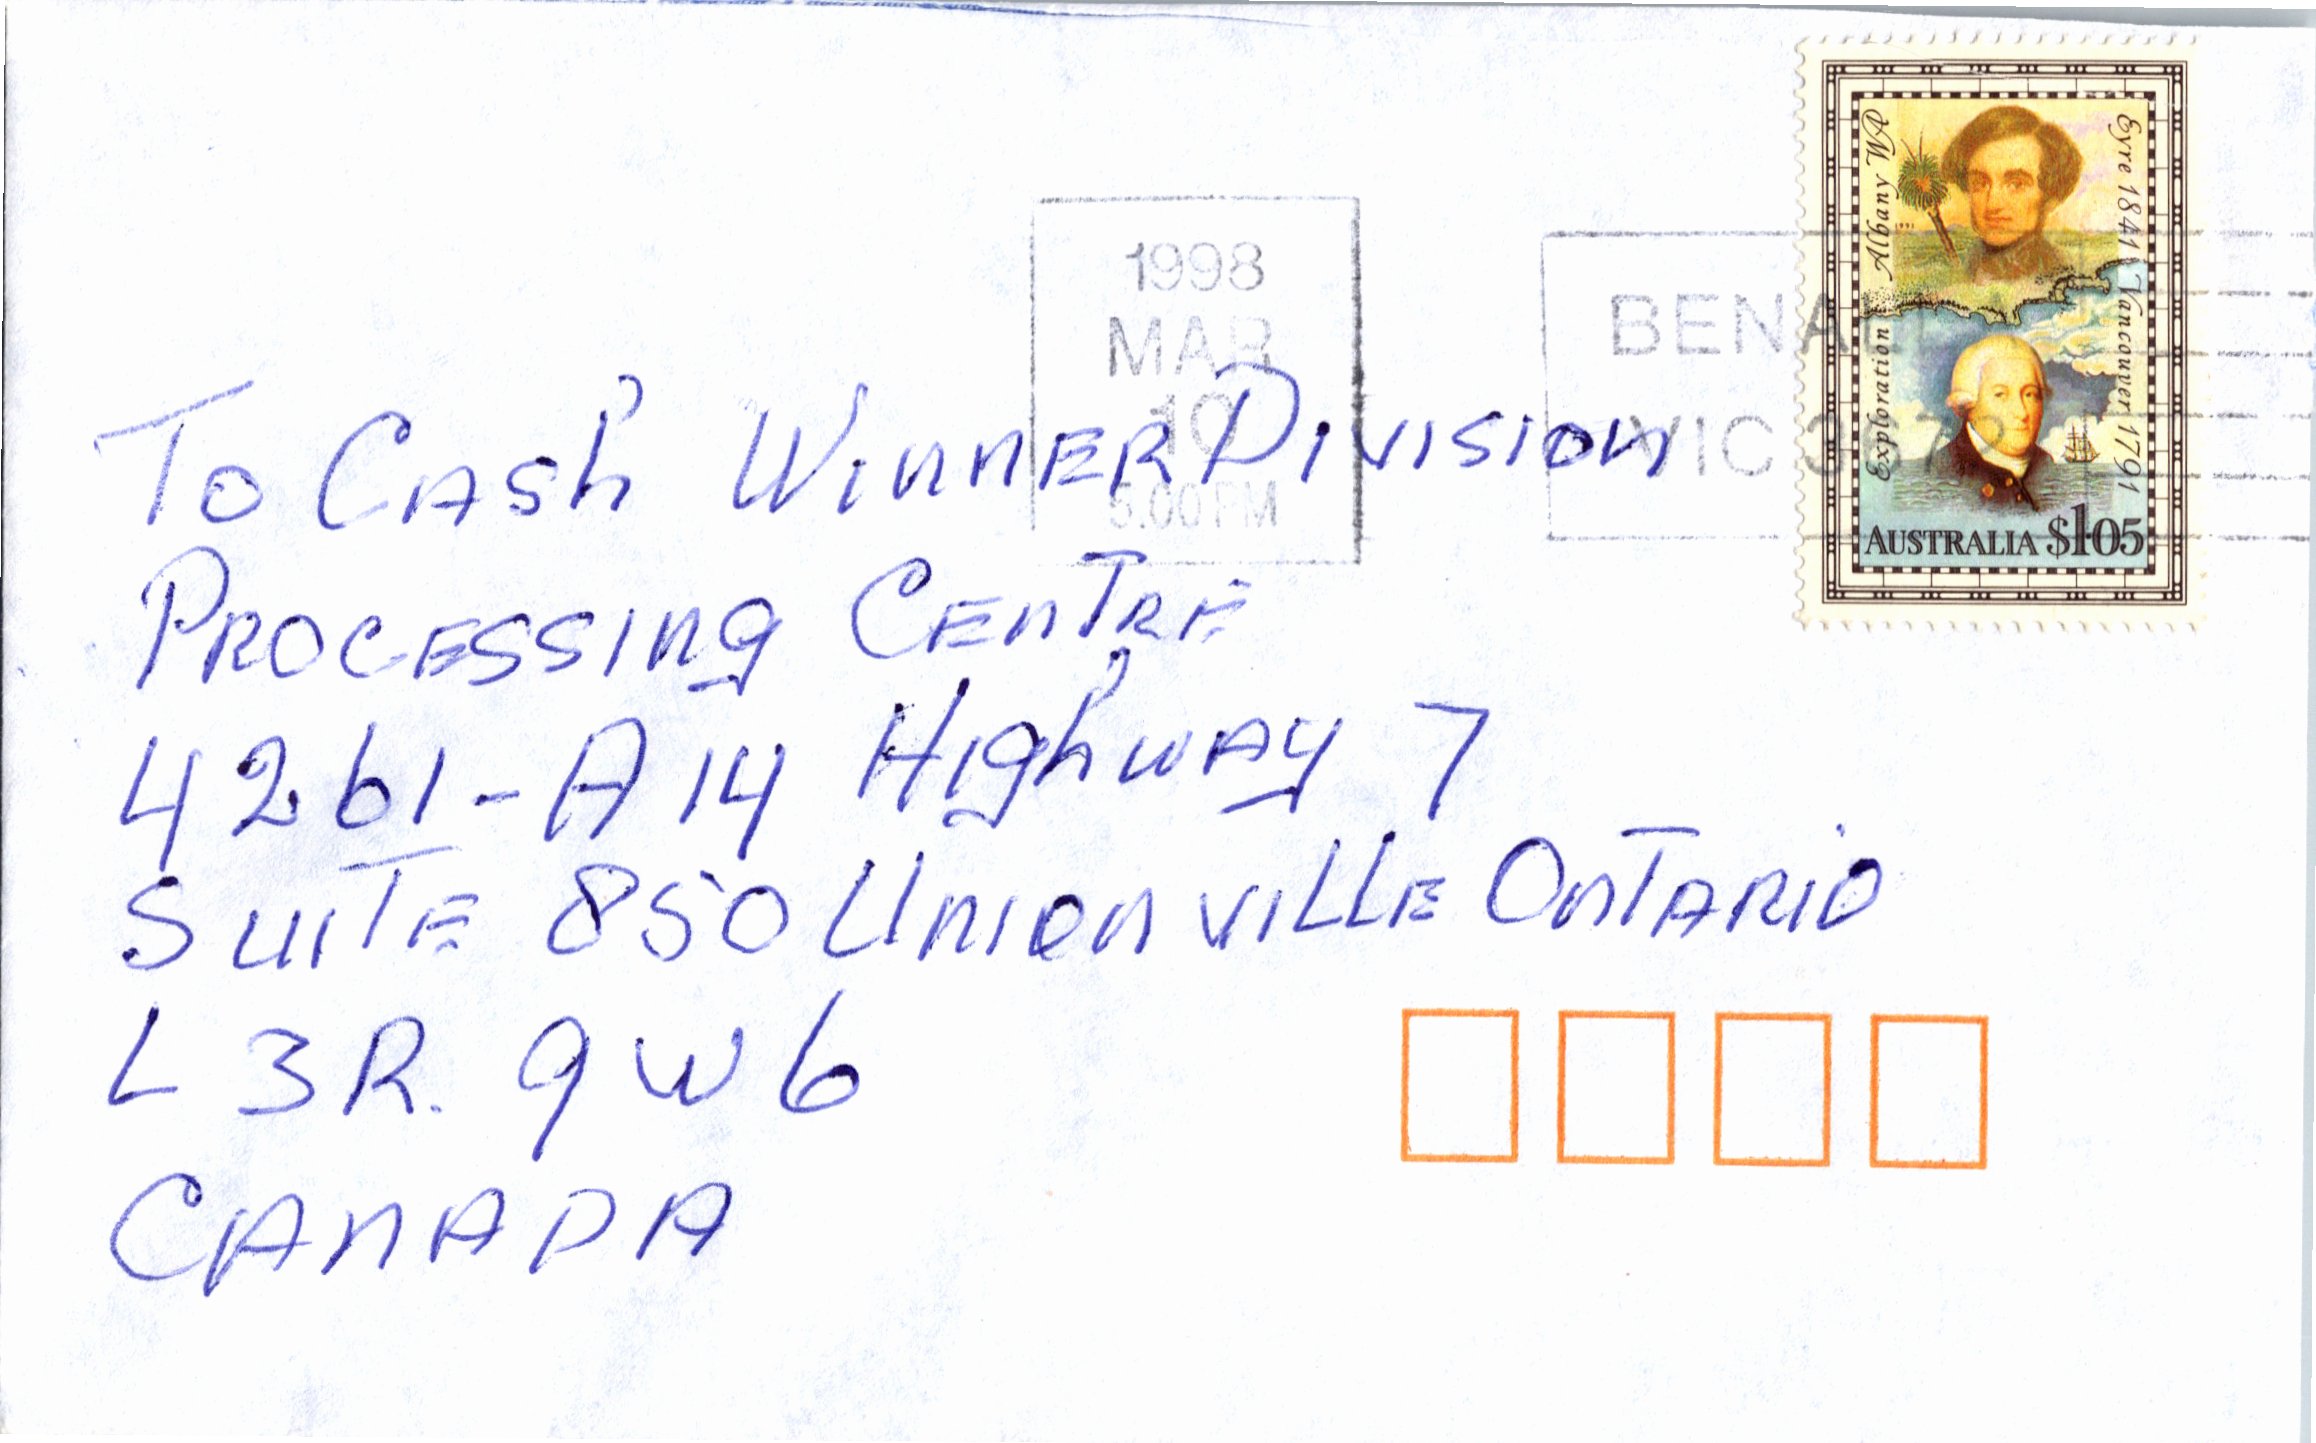 1998
MAR
10
5.00PM
BENA
VIC 3
Exploration Albany WA
Eyre 1841 Vancouver 1791
1991
AUSTRALIA $1.05
To Cash Winner Division
Processing Centre
4261-A14 Highway 7
Suite 850 Unionville Ontario
L3R. 9W6
CANADA